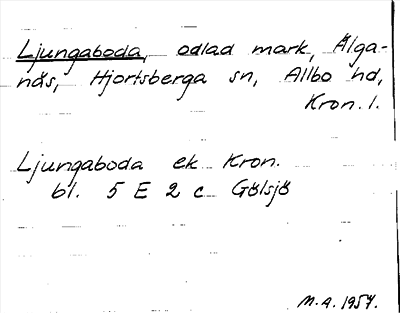 Ljungaboda, odlad mark, Älga-
näs, Hjortsberga sn, Allbo hd,
Kron. l.
Ljungaboda ek Kron.
bl. 5 E 2 c Gölsjö
M.A. 1957.